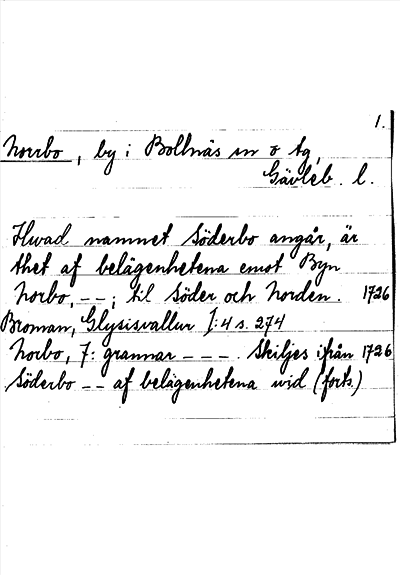 1.
Norrbo, by i Bollnäs sn o tg,
Gävleb. l.
Hwad namnet Söderbo angår, är
thet af belägenhetena emot Byn
Norbo, --; til Söder och Norden. 1726
Broman, Glysisvallur I:4 s. 274
Norbo, 7: grannar ---. Skiljes ifrån 1726
Söderbo -- af belägenhetena wid (forts.)